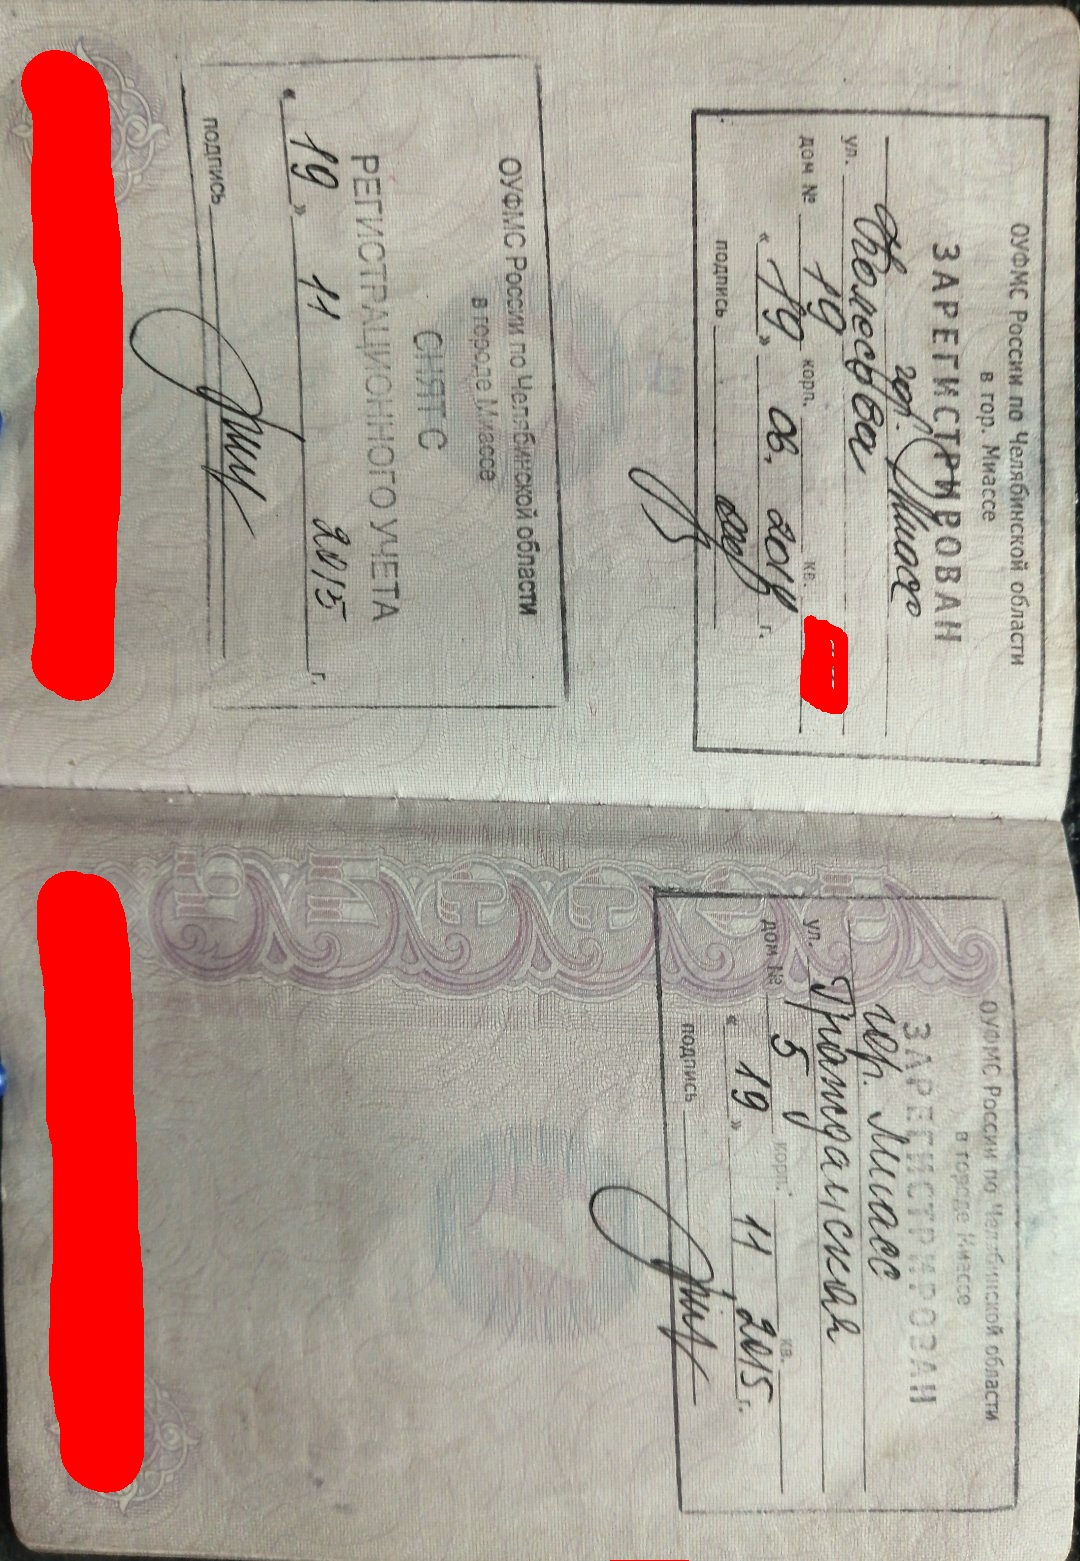 ОУФМС России по Челябинской области
в гор. Миассе
ЗАРЕГИСТРИРОВАН
гор. Миасс
ул.
дом № 19 корп. кв.
« 19 » 08. 2014 г.
подпись
ОУФМС России по Челябинской области
в городе Миассе
СНЯТ С
РЕГИСТРАЦИОННОГО УЧЕТА
« 19 » 11 2015 г.
подпись
ОУФМС России по Челябинской области
в городе Миассе
ЗАРЕГИСТРИРОВАН
гор. Миасс
ул. Гражданская
дом № 5 корп. кв.
« 19 » 11 2015 г.
подпись